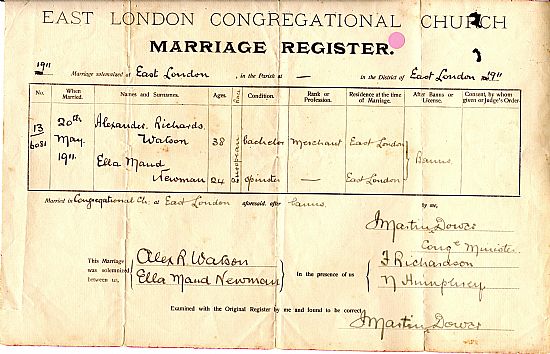 EAST LONDON CONGREGATIONAL CHURCH
MARRIAGE REGISTER.
1911 Marriage solemnized at East London, in the Parish of — in the District of East London 1911
No. When Married. Names and Surnames. Ages. Condition. Rank or Profession. Residence at the time of Marriage. After Banns or License. Consent, by whom given or Judge's Order.
13 20th Alexander Richards
6081 May Watson 38 European Bachelor Merchant East London
1911 Ella Maud Banns
Newman 24 Spinster — East London
Married in Congregational Ch. at East London aforesaid after banns by me,
Martin Dower
Congl Minister
This Marriage was solemnized between us, Alex R Watson In the presence of us F Richardson
Ella Maud Newman N Humphrey
Examined with the Original Register by me and found to be correct,
Martin Dower